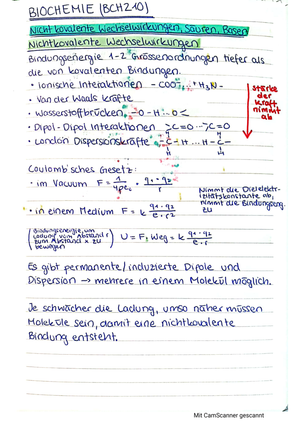 BIOCHEMIE (BCH210)
Nicht kovalente Wechselwirkungen, Säuren, Basen
Nichtkovalente Wechselwirkungen
Bindungsenergie 1-2 Grössenordnungen tiefer als
die von kovalenten Bindungen.
• ionische Interaktionen -COO⁻ ⁺H₃N-
• Van der Waals kräfte
• Wasserstoffbrücken -O-H···O<
• Dipol-Dipol Interaktionen >C=O···>C=O
• London Dispersionskräfte -C-H···H-C-
H H
stärke
der
kraft
nimmt
ab
Coulomb'sches Gesetz:
• im Vakuum F = 1/4πε₀ · q₁·q₂/r
• in einem Medium F = k q₁·q₂/ε·r²
Nimmt die Dielektri-
zitätskonstante ab,
nimmt die Bindungsenerg.
zu
Bindungsenergie, um
Ladung vom Abstand r
zum Abstand ∞ zu
bewegen
U = F·Weg = k q₁·q₂/ε·r
Es gibt permanente/induzierte Dipole und
Dispersion → mehrere in einem Molekül möglich.
Je schwächer die Ladung, umso näher müssen
Moleküle sein, damit eine nichtkovalente
Bindung entsteht.
Mit CamScanner gescannt